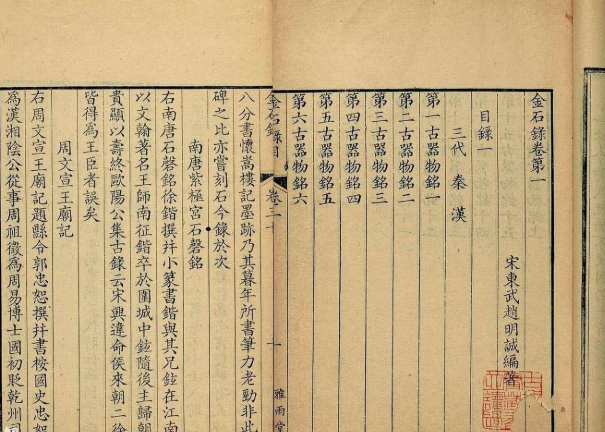 金石錄卷第一
宋東武趙明誠編著
目錄一
三代 秦 漢
第一古器物銘一
第二古器物銘二
第三古器物銘三
第四古器物銘四
第五古器物銘五
第六古器物銘六
金石錄目
卷三十
一
雅雨堂
八分書懷嵩樓記墨跡乃其暮年所書筆力老勁非此
碑之比亦嘗刻石今錄於次
南唐紫極宮石磬銘
右南唐石磬銘徐鍇撰并小篆書鍇與其兄鉉在江南
以文翰著名王師南征鍇卒於圍城中鉉隨後主歸朝
貴顯以壽終歐陽公集古錄云宋興違命侯來朝二徐
皆得為王臣者誤矣
周文宣王廟記
右周文宣王廟記題縣令郭忠恕撰并書桉國史忠恕
為漢湘陰公從事周祖徵為周易博士國初貶乾州司